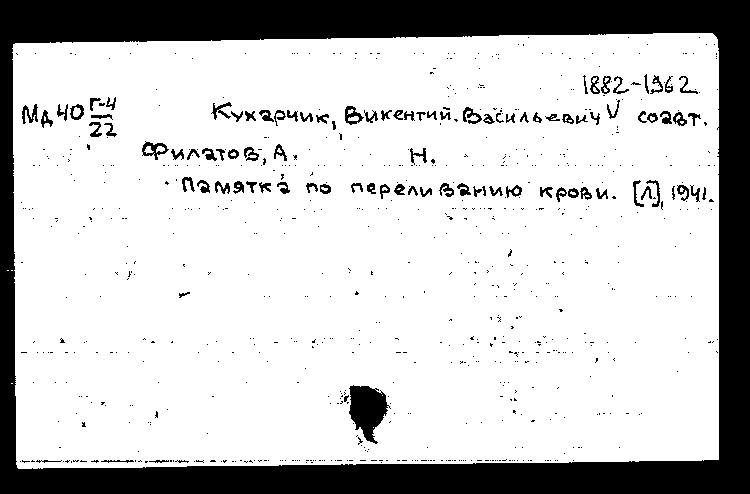 1882-1962
Мд 40 Г-4/22 Кухарчик, Викентий Васильевич V соавт.
Филатов, А. Н.
Памятка по переливанию крови. [Л.], 1941.